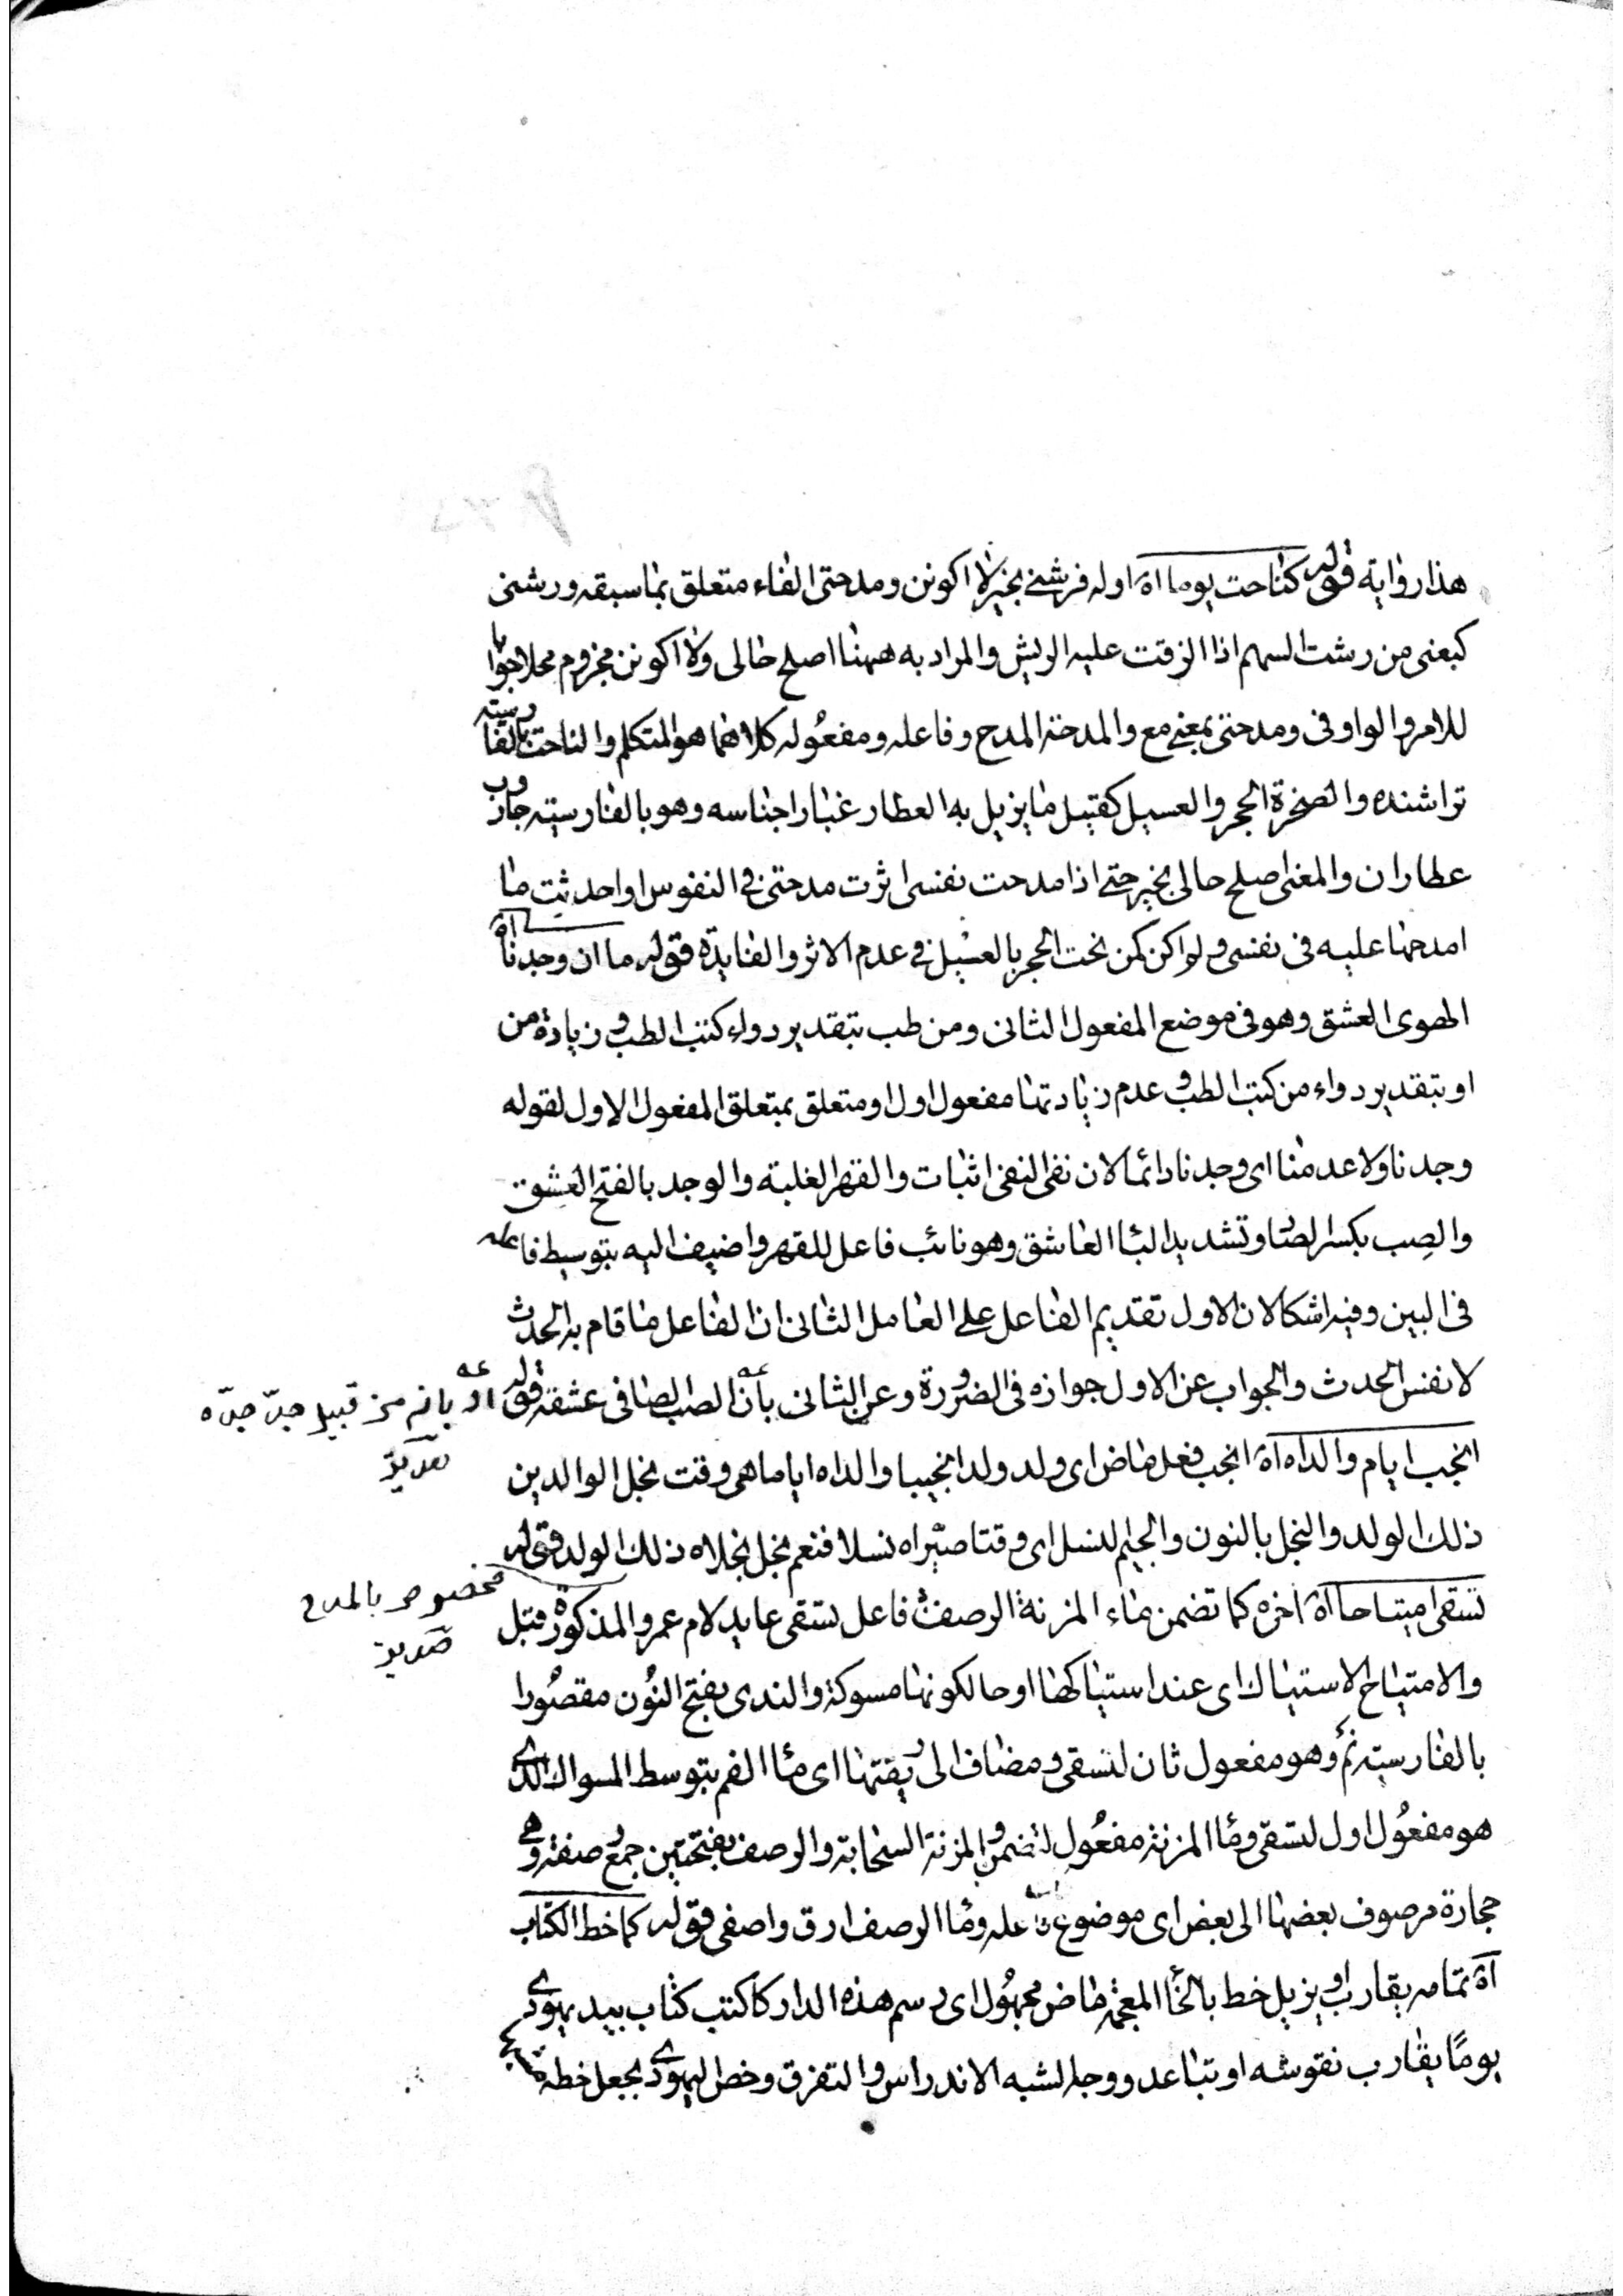 هذا رواية قوله كناحت يوما اه اوله فرشني بخير لا اكونن ومدحتى الفاء متعلق بما سبقه ورشنى
كبعنى من رشت السهم اذا الزقت عليه الريش والمراد به ههنا اصلح حالى ولا اكونن مجزوم محلا جوابا
للامر والواو فى ومدحتى بمعنى مع والمدحة المدح وفاعله ومفعوله كلاهما هو المتكلم والناحت بالفارسية
تراشنده والصخرة الحجر والعسيل كقتيل ما يزيل به العطار غبار اجناسه وهو بالفارسية جاروب
عطاران والمعنى اصلح حالى بخير حتى اذا مدحت نفسى اثرت مدحتى فى النفوس او احدثت ما
امدحها عليه فى نفسى ولو اكن كمن نحت الحجر بالعسيل فى عدم الاثر والفايدة قوله ما ان وجدنا اه
الهوى العشق وهو فى موضع المفعول الثانى ومن طب بتقدير دواء كتب الطب وزيادة من
او بتقدير دواء من كتب الطب وعدم زيادتها مفعول اول او متعلق بمتعلق المفعول الاول لقوله
وجدنا ولا عدمنا اى وجدنا دائما لان نفى النفى اثبات والقهر الغلبة والوجد بالفتح العشق
والصِب بكسر الصاد وتشديد البا العاشق وهو نائب فاعل للقهر واضيف اليه بتوسيط فاعله
فى البين وفيه اشكالان الاول تقديم الفاعل على العامل الثانى ان الفاعل ما قام به الحدث
لا نفس الحدث والجواب عن الاول جوازه فى الضرورة وعن الثانى بأن الصب الصافى عشقه قوله
اﻭ بانه من قبيل جدّ جدّه
انجب ايام والداه اه انجب فعل ماض اى ولد ولدا نجيبا والداه اياما هى وقت نجل الوالدين
ذلك الولد والنجل بالنون والجيم النسل اى وقتا صيّراه نسلا فنعم نجل نجلاه ذلك الولد قوله
مخصوص بالمدح
تسقى امتياحا اه اخره كما تضمن ماء المزنة الرصف فاعل تسقى عايد لام عمرو المذكورة قبل
والامتياح الاستياك اى عند استياكها او حالكونها مسوكة والندى بفتح النُون مقصُورا
بالفارسية نم وهو مفعول ثان لتسقى ومضاف الى ريقتها اى ما الفم بتوسط المسواك الذى
هو مفعُول اول لتسقى وما المزنة مفعُول لتضمن والمزنة السحابة والرصف بفتحتين جمع رصفة وهى
حجارة مرصوف بعضها الى بعض اى موضوع عله وما الرصف ارق واصفى قوله كما خط الكتاب
اه تمامه يقارب او يزيل خط بالخا المعجمة ماض مجهُول اى رسم هذه الدار كما كتب كتاب بيد يهودى
يومًا يقارب نقوشه او تباعد ووجه الشبه الاندراس والتفرق وخص اليهودى بجعل خطه